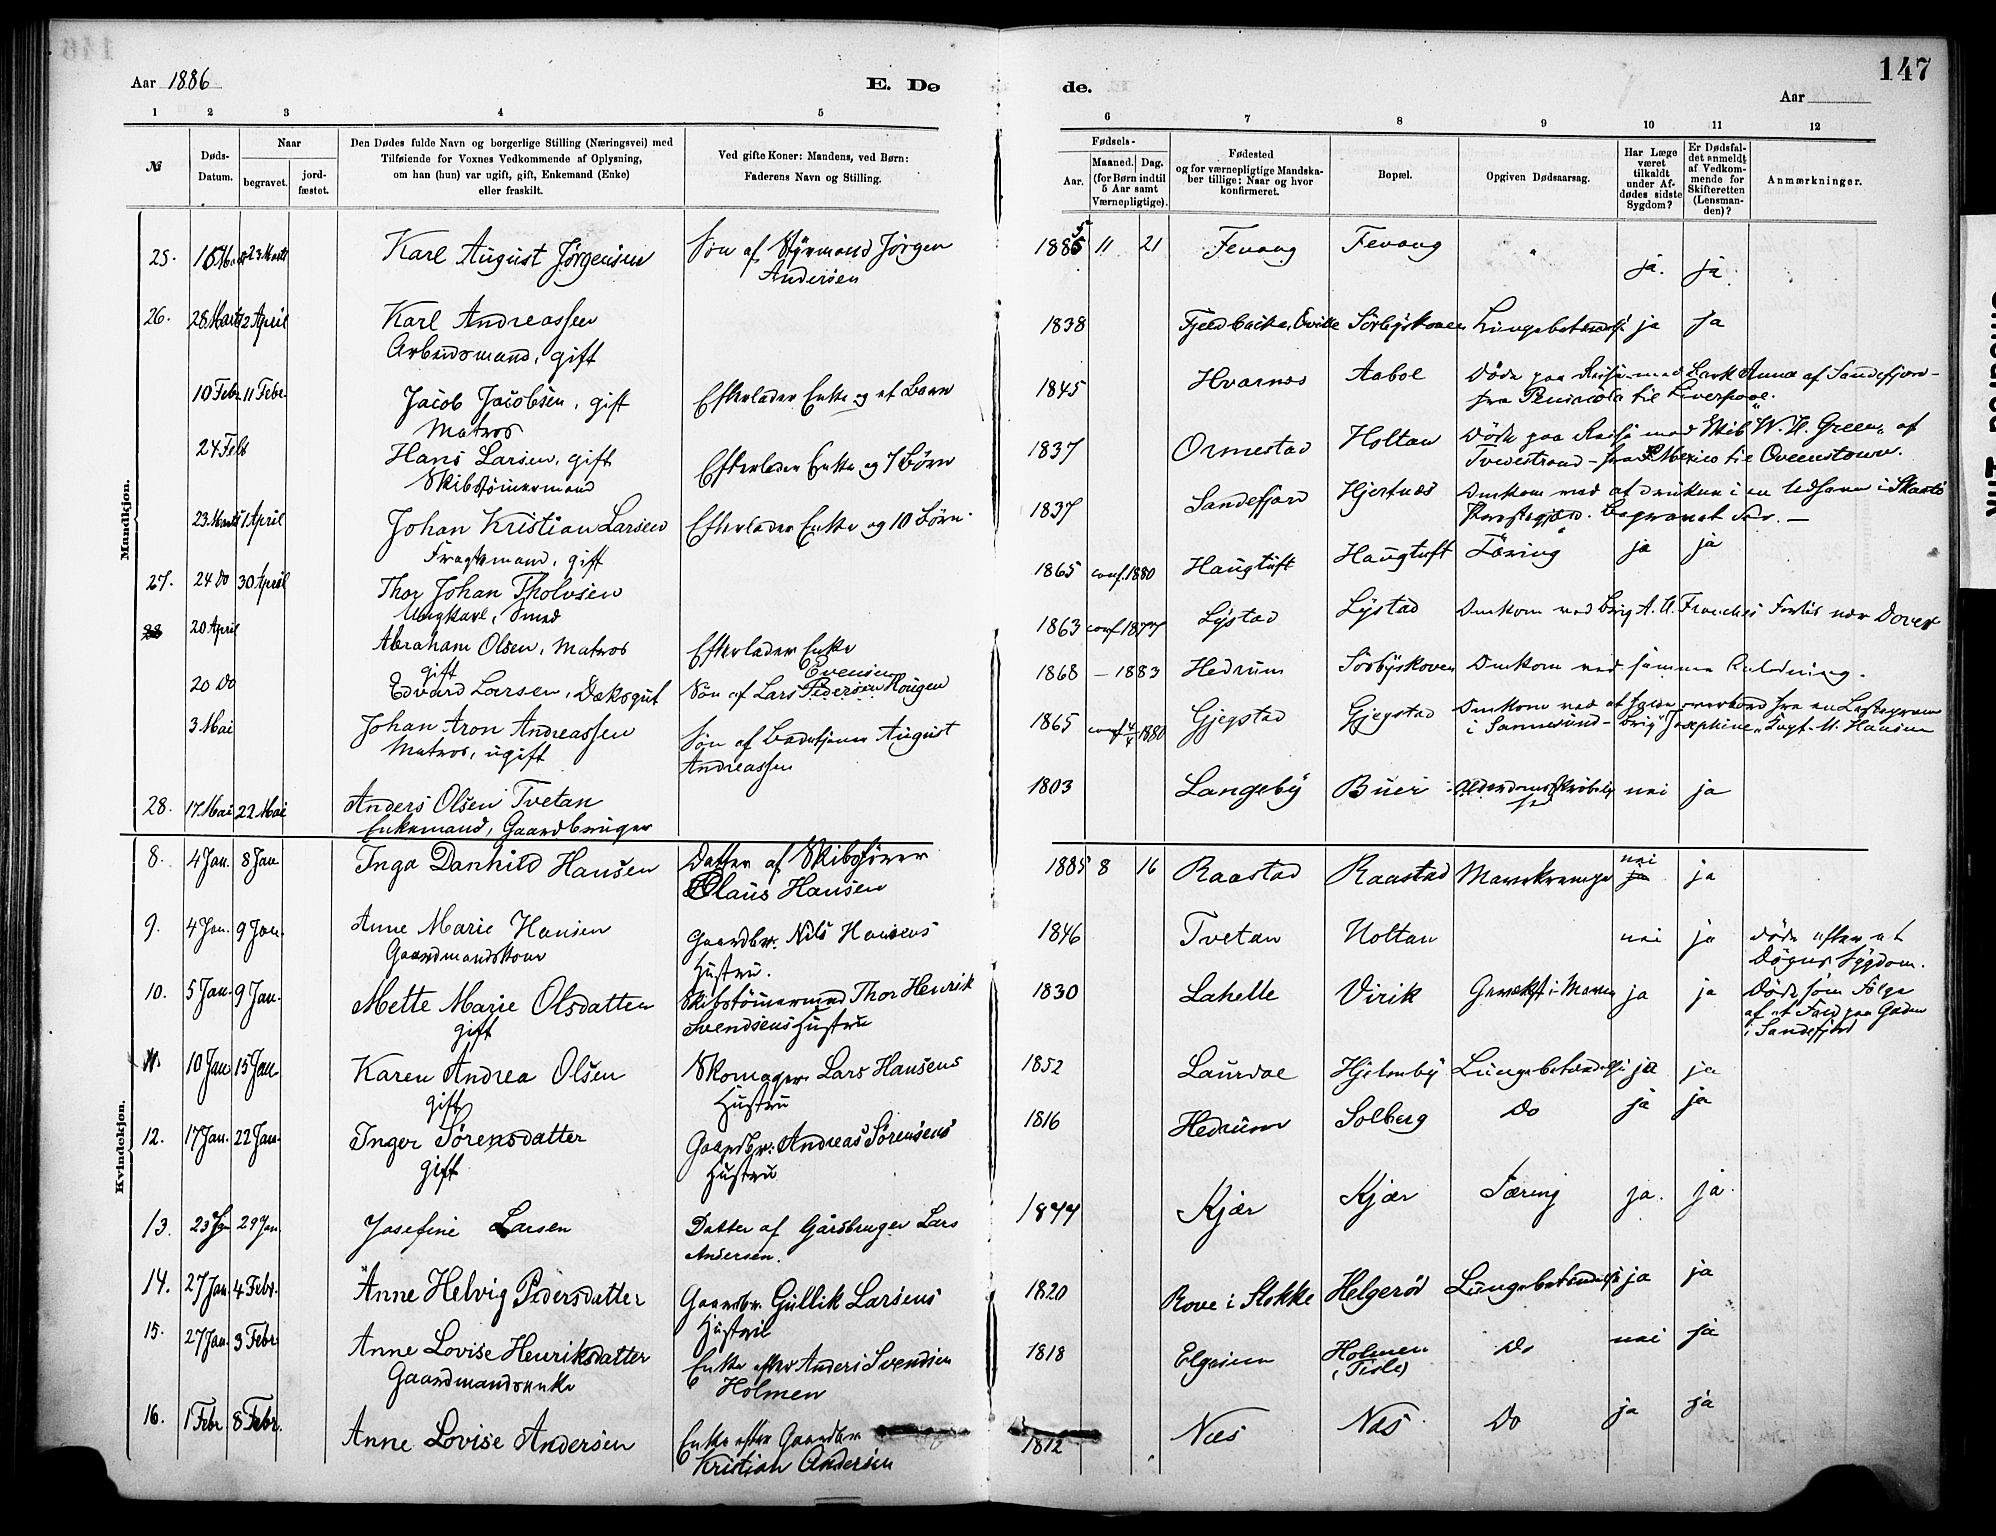 147
Aar 1886
E. Dø
de.
Aar
1 2 3 4 5
6 7 8 9 10 11 12
№
Døds-
Datum.
Naar
begravet.
jord-
fæstet.
Den Dødes fulde Navn og borgerlige Stilling (Næringsvei) med
Tilføiende for Voxnes Vedkommende af Oplysning,
om han (hun) var ugift, gift, Enkemand (Enke)
eller fraskilt.
Ved gifte Koner: Mandens, ved Børn:
Faderens Navn og Stilling.
Fødsels-
Aar.
Maaned. Dag.
(for Børn indtil
5 Aar samt
Værnepligtige).
Fødested
og for værnepligtige Mandska-
ber tillige: Naar og hvor
konfirmeret.
Bopæl.
Opgiven Dødsaarsag.
Har Læge
været
tilkaldt
under Af-
dødes sidste
Sygdom?
Er Dødsfal-
det anmeldt
af Vedkom-
mende for
Skifteretten
(Lensman-
den)?
Anmærkninger.
Mandkjøn.
25. 16 Marts 23 Marts Karl August Jørgensen Søn af Styrmand Jørgen
Andersen
1885 11 21 Fevang Fevang " ja. ja.
26. 28 Marts 2 April Karl Andreassen
Arbeidsmand, gift
1838 Fjeldbacka, Sörbyskoven Lungebetændelse ja ja
10 Febr 11 Febr Jacob Jacobsen, gift Efterlader Enke og et Barn
Matros
1845 Hvarnes Aaboe Døde paa Reise med Bark Anna af Sandefjord-
fra Pensacola til Liverpool.
24 Feb Hans Larsen, gift Efterlader Enke og 7 Børn
Skibstømermand
1837 Ormestad Holtan Døde paa Reise med Skib "W. H. Green" af
Tvedestrand - fra Mexico til Qveenstown.
23 Marts 1 April Johan Kristian Larsen Efterlader Enke og 10 Børn.
Fragtemand, gift
1837 Sandefjord Hjertnæs Omkom ved at drukne i en i
Begravet
27. 24 Do 30 April Thor Johan Tholvsen
Ungkarl, Smed
1865 conf. 1880 Haugtuft Haugtuft Tæring ja ja
28 20 April Abraham Olsen, Matros Efterlader Enke
gift
1863 conf 1877 Lystad Lystad Omkom ved Brig A. H. Forlis nær Dover
20 Do Edvard Larsen, Dæksgut Søn af Lars Pedersen Haugen
Evensen
1868 - 1883 Hedrum Sörbyskoven Omkom ved samme Anledning.
3 Mai Johan Aron Andreassen Søn af August
Matros, ugift Andreassen
1865 conf 4/4 1880 Gjegstad Gjegstad Omkom ved at falde overbord fra en
i Sannesund - Brig "Josephine" M. Hansen
28. 17 Mai 22 Mai Anders Olsen Tvetan
Enkemand, Gaardbruger
1803 Langeby Buer nei ja
Kvindekjøn.
8. 4 Jan. 8 Jan Inga Danhild Hansen Datter af Skibsfører
Olaus Hansen
1885 8 16 Raastad Raastad Mavekrampe nei ja ja
9. 4 Jan. 9 Jan. Anne Marie Hansen Gaardbr. Nils Hansens
Gaardmandskone Hustru.
1846 Tvetan Holtan nei ja Døde efter et
Døgns Sygdom.
10. 5 Jan. 9 Jan. Mette Marie Olsdatter Skibstømermand Thor Henrik
gift Svendsens Hustru
1830 Lahelle Virik Gevækst i Maven ja ja Døde som Følge
af et Fald paa Gaden
i Sandefjord
11. 10 Jan 15 Jan. Karen Andrea Olsen Skomager Lars Hansens
gift Hustru
1852 Laurdae Hjelmby Lungebetændelse ja ja
12. 17 Jan. 22 Jan. Inger Sørensdatter Gaardbr. Andreas Sørensens
gift Hustru
1816 Hedrum Solberg Do ja ja
13. 23 Jan 29 Jan Josefine Larsen Datter af Gårdbruger Lars
Andersen.
1877 Kjær Kjær Tæring ja. ja.
14. 27 Jan. 4 Febr. Anne Helvig Pedersdatter Gaardbr. Gullik Larsens
Hustru
1820 Rove i Stokke Helgerød Lungebetændelse ja ja
15. 27 Jan. 3 Febr Anne Lovise Henriksdatter Enke efter Anders Svendsen
Gaardmandsenke Holmen
1818 Elgesem Holmen Do nei ja
16. 1 Febr 8 Febr. Anne Lovise Andersen Enke efter Gaardbr
Kristian Andersen
1812 Næs Næs Do ja ja